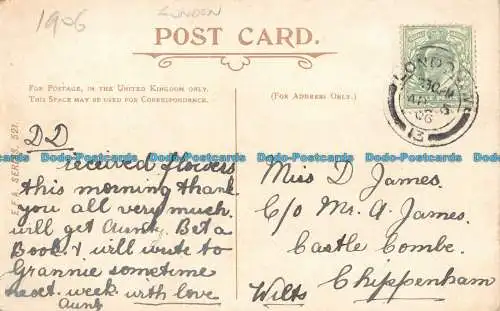 1906
LONDON
POST CARD.
FOR POSTAGE, IN THE UNITED KINGDOM ONLY.
THIS SPACE MAY BE USED FOR CORRESPONDENCE.
(FOR ADDRESS ONLY.)
LONDON
06
13
E.F.A. SERIES. 521.
DD
received flowers
this morning thank
you all very much.
will get Aunty. Bet a
Book. & will write to
Grannie sometime
next. week. with love
Aunt
Miss D James.
C/o Mr. A. James.
Castle Combe.
Chippenham
Wilts
Dodo-Postcards Dodo-Postcards Dodo-Postcards Dodo-Postcards Dodo-Postcards